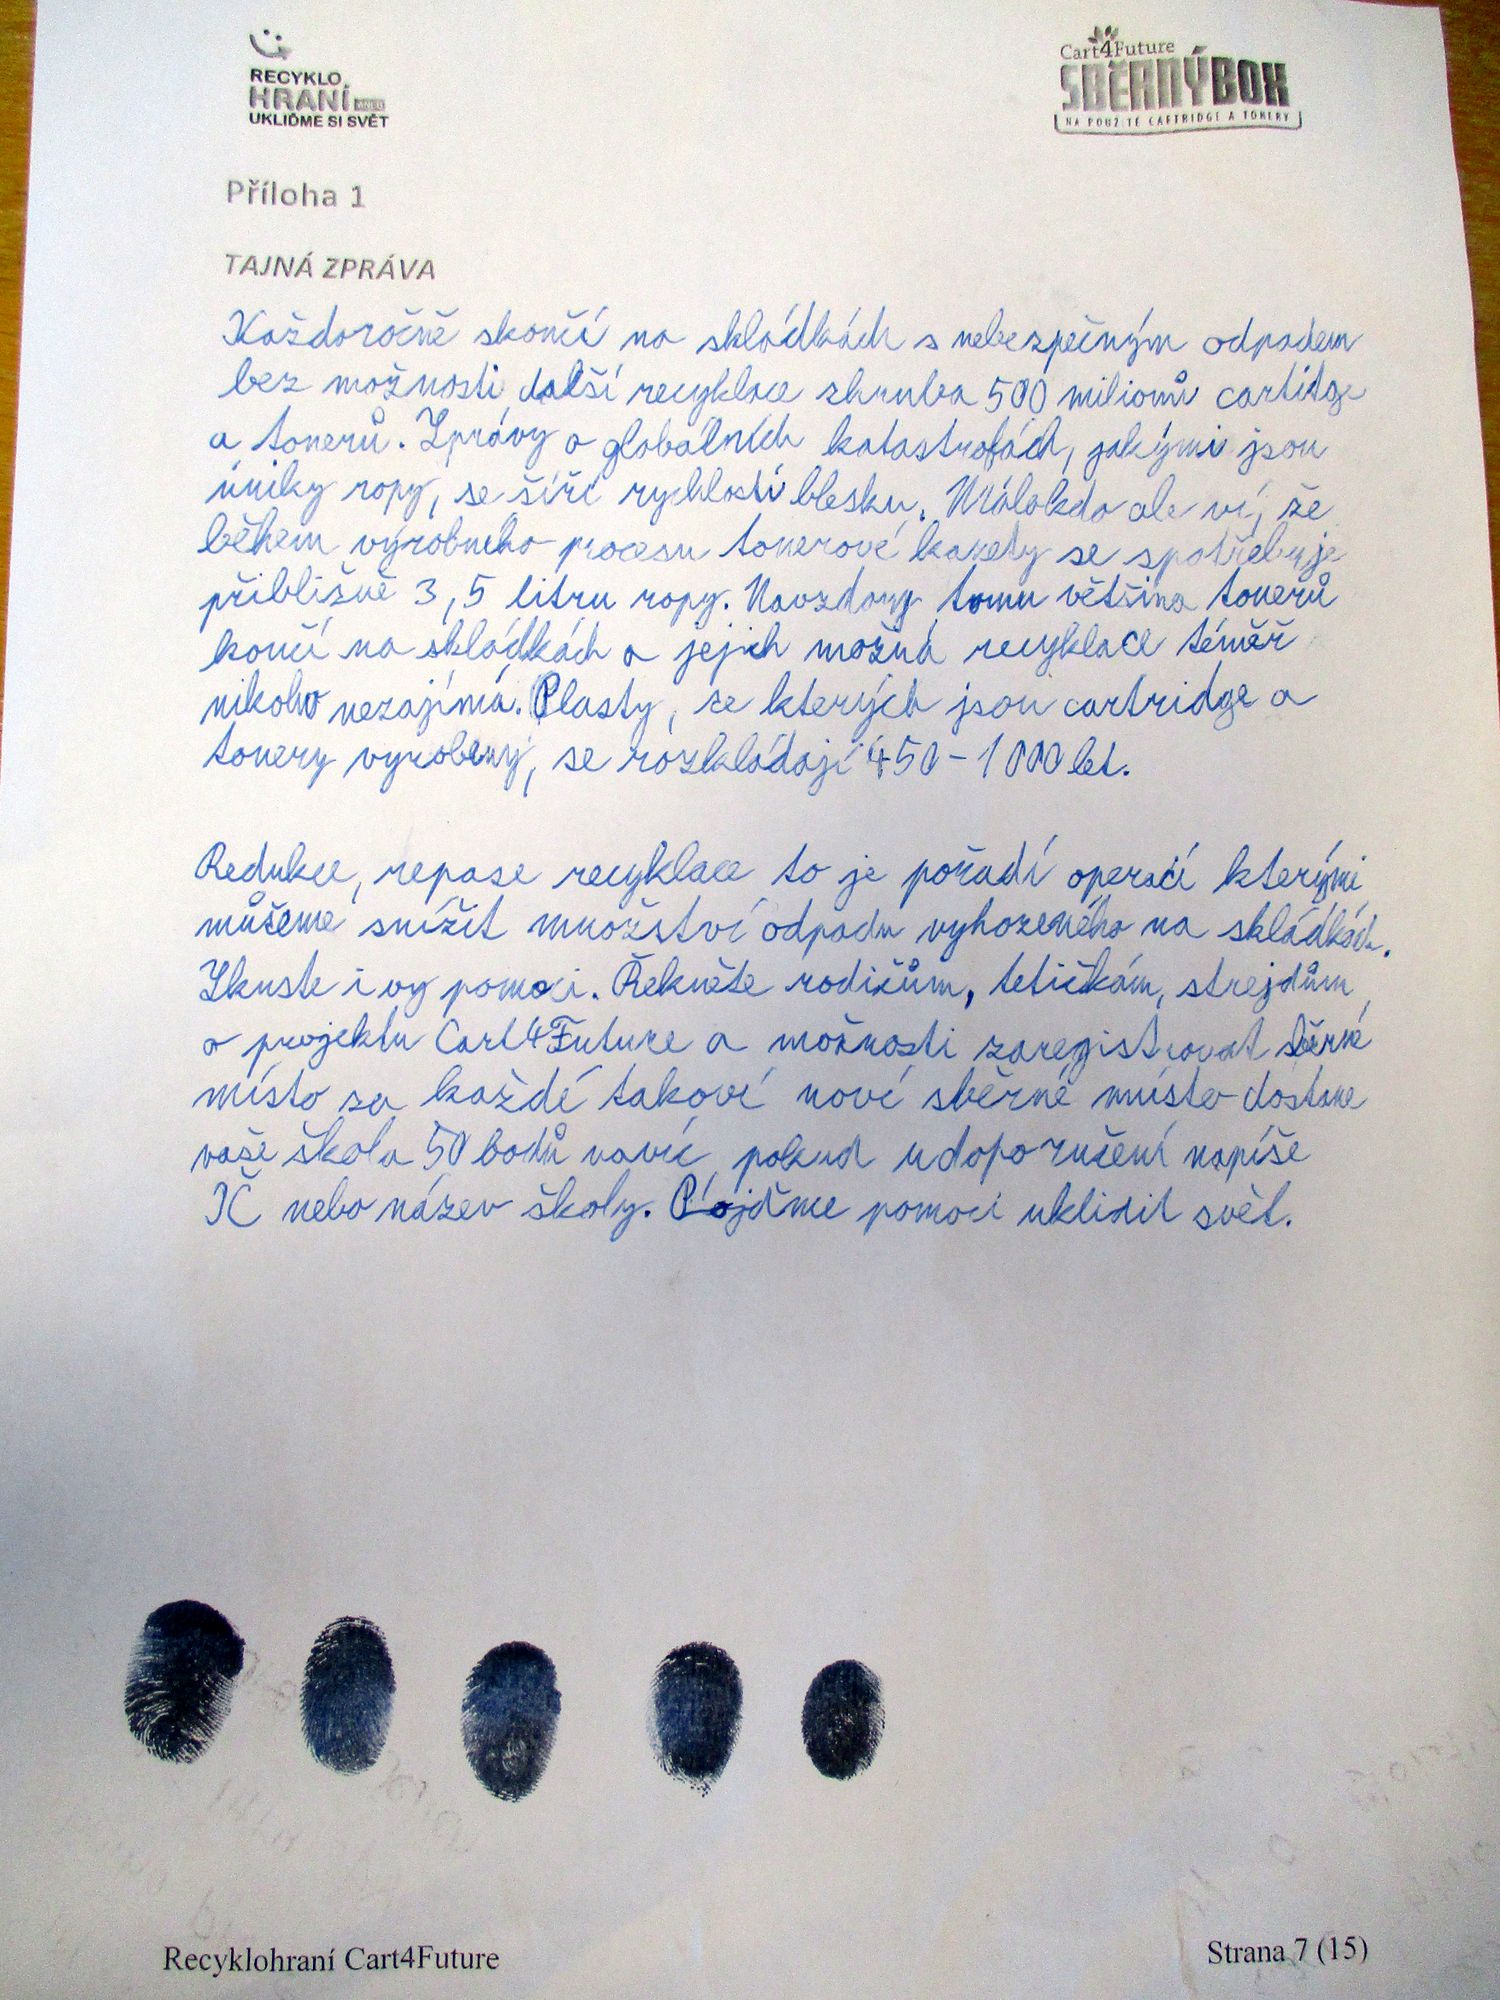 RECYKLO
HRANÍ ANEB
UKLIĎME SI SVĚT
Cart4Future
SBĚRNÝ BOX
NA POUŽITÉ CARTRIDGE A TONERY
Příloha 1
TAJNÁ ZPRÁVA
Každoročně skončí na skládkách s nebezpečným odpadem
bez možnosti další recyklace zhruba 500 milionů cartidge
a tonerů. Zprávy o globálních katastrofách, jakými jsou
úniky ropy, se šíří rychlostí blesku. Málokdo ale ví, že
během výrobního procesu tonerové kazety se spotřebuje
přibližně 3,5 litru ropy. Navzdory tomu většina tonerů
končí na skládkách a jejich možná recyklace téměř
nikoho nezajímá. Plasty, ze kterých jsou cartridge a
tonery vyrobeny, se rozkládají 450-1000 let.
Redukce, repase recyklace to je pořadí operací kterými
můžeme snížit množství odpadu vyhozeného na skládkách.
Zkuste i vy pomoci. Řekněte rodičům, tetičkám, strejdům
o projektu Cart4Future a možnosti zaregistrovat sběrné
místo za každé takové nové sběrné místo dostane
vaše škola 50 bodů navíc pokud u doporučení napíše
IČ nebo název školy. Pojďme pomoci uklidit svět.
Recyklohraní Cart4Future
Strana 7 (15)